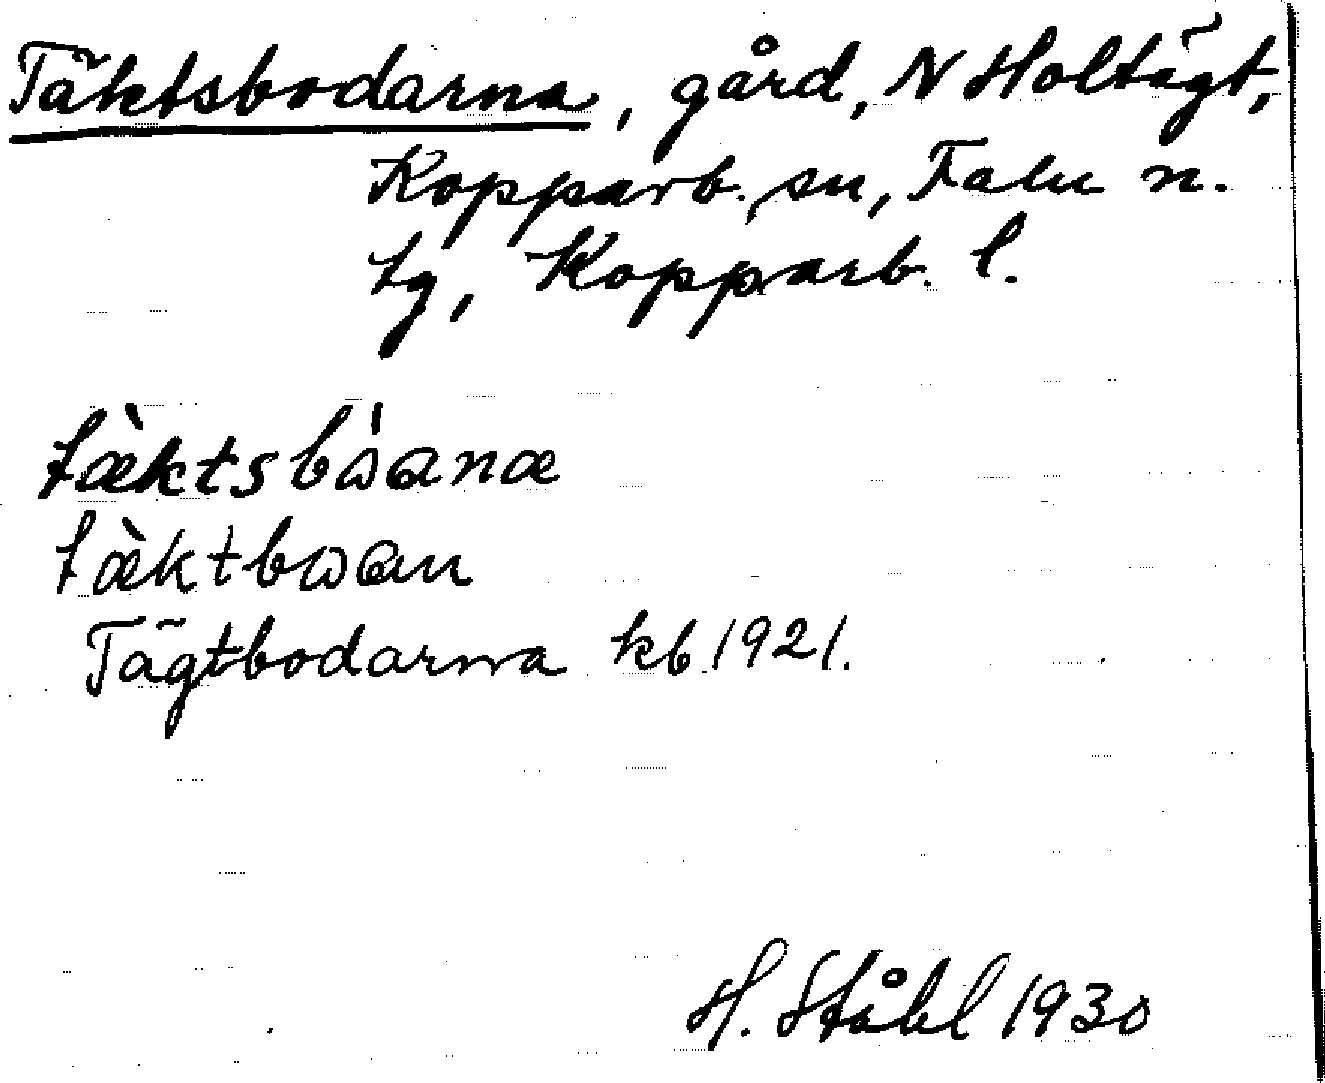 Täktsbodarna, gård, N Holtägt,
Kopparb. sn, Falu n.
tg, Kopparb. l.
tæ̀ktsbɷ́ɑnæ
tæ̀ktbɷɑn
Tägtbodarna kb 1921.
H. Ståhl 1930